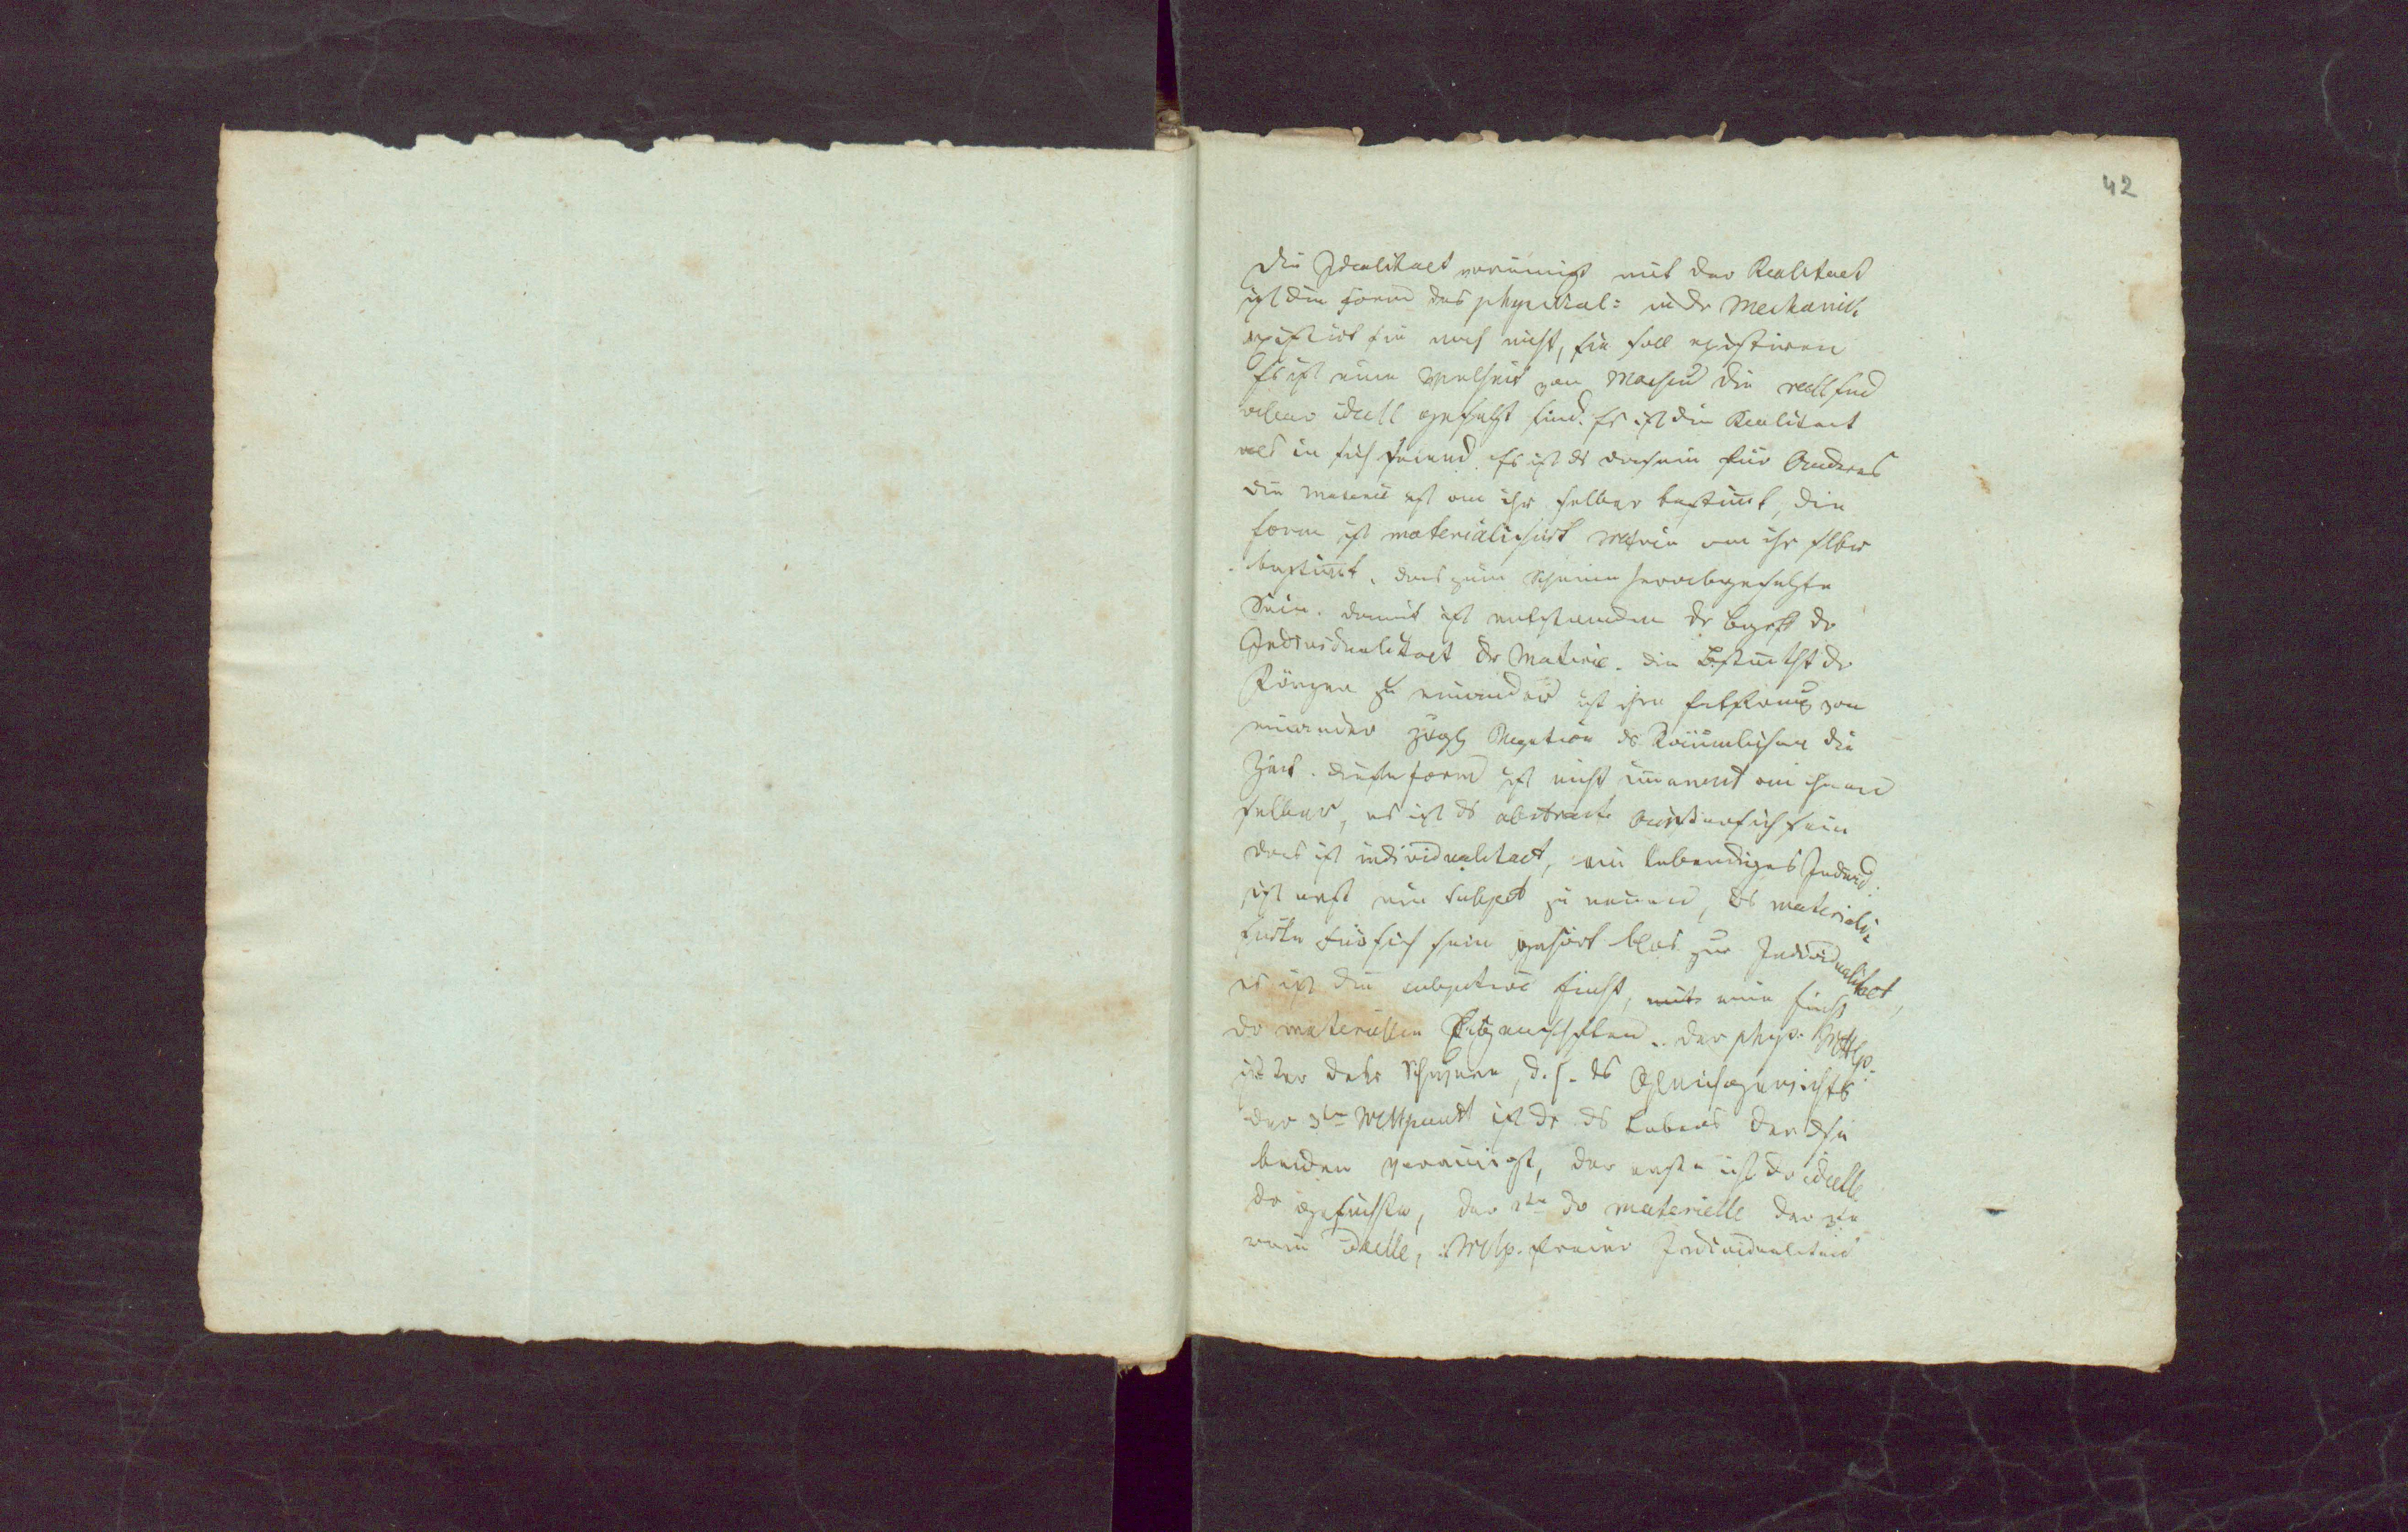 42
Die Idealitaet vereinigt mit der Realitaet
ist die Form des physical: in dr Mechanik
existirt sie noch nicht, sie soll existiren
Es ist eine Vielheit von Massen die reell sind
aber ideell gesetzt sind. Es ist die Realitaet
als in sich seiend. Es ist ds Dasein für Anderes
die Materie ist an ihr selber bestimt, die
Form ist materialisirt Materie an ihr selber
bestimt. das zum Scheine herabgesetzte
Sein. damit ist entstanden dr Begrff dr
Individualitaet dr Materie. die Bestimtht dr
Körper zu einander ist ihre Entfernung von
einander zugl Negation ds Räumlichen die
Zeit. diese Form ist nicht imanent an ihnen
selber, es ist ds abstracte Aussersichsein
das ist individualitaet, ein lebendiges Individ:
ist erst ein Subject zu nennen, ds materiali-
sirte Fürsichsein gehört blos zur Individualitaet,
es ist die subjective Einht, eine Einht
dr materiellen Eigenschften. der phys. Mttlp.
ist der der Schwere, d.h. ds Gleichgewichts
der 3te Mttpunkt ist dr ds Lebens der die
beiden vereinigt, der erste ist dr ideelle
dr gesuchte, der 2te dr materielle der 3te
rein ideelle, Mttlp. freier Individualitaet